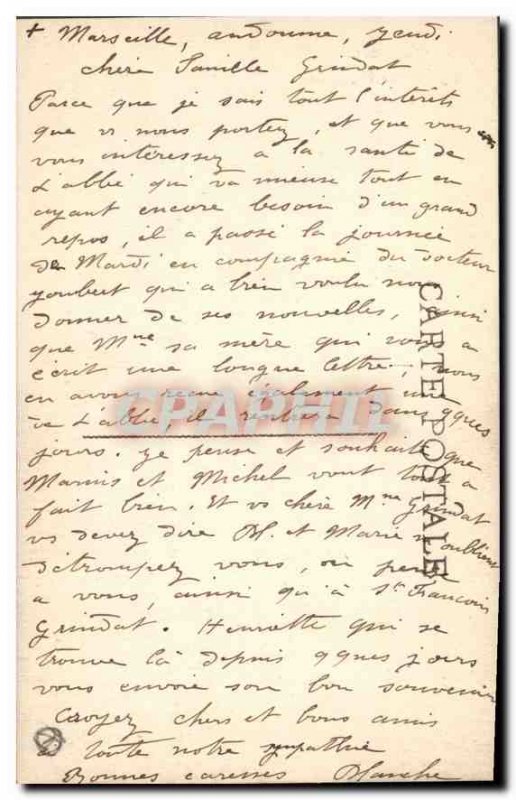 + Marseille, endoume, jeudi
chère Famille Grindat
Parce que je sais tout l'intérêt
que vs nous portez, et que vous
vous intéressez à la santé de
L'abbé qui va mieux tout en
ayant encore besoin d'un grand
repos, il a passé la journée
de Mardi en compagnie du docteur
Joubert qui a bien voulu nous
donner de ses nouvelles, ainsi
que Mme sa mère qui vous a
écrit une longue lettre, nous
en avons reçue également une
de L'abbé il rentrera dans qques
jours. Je pense et souhaite que
Marius et Michel vont tout à
fait bien. Et vs chère Mme Grindat
vs devez dire M. et Marie m'oublient
détrompez vous, on pense
à vous, ainsi qu'à St François
Grindat. Henriette qui se
trouve là depuis qques jours
vous envoie son bon souvenir
Croyez chers et bons amis
à toute notre sympathie
Bonnes caresses Blanche
CARTE POSTALE
CPAPHIL